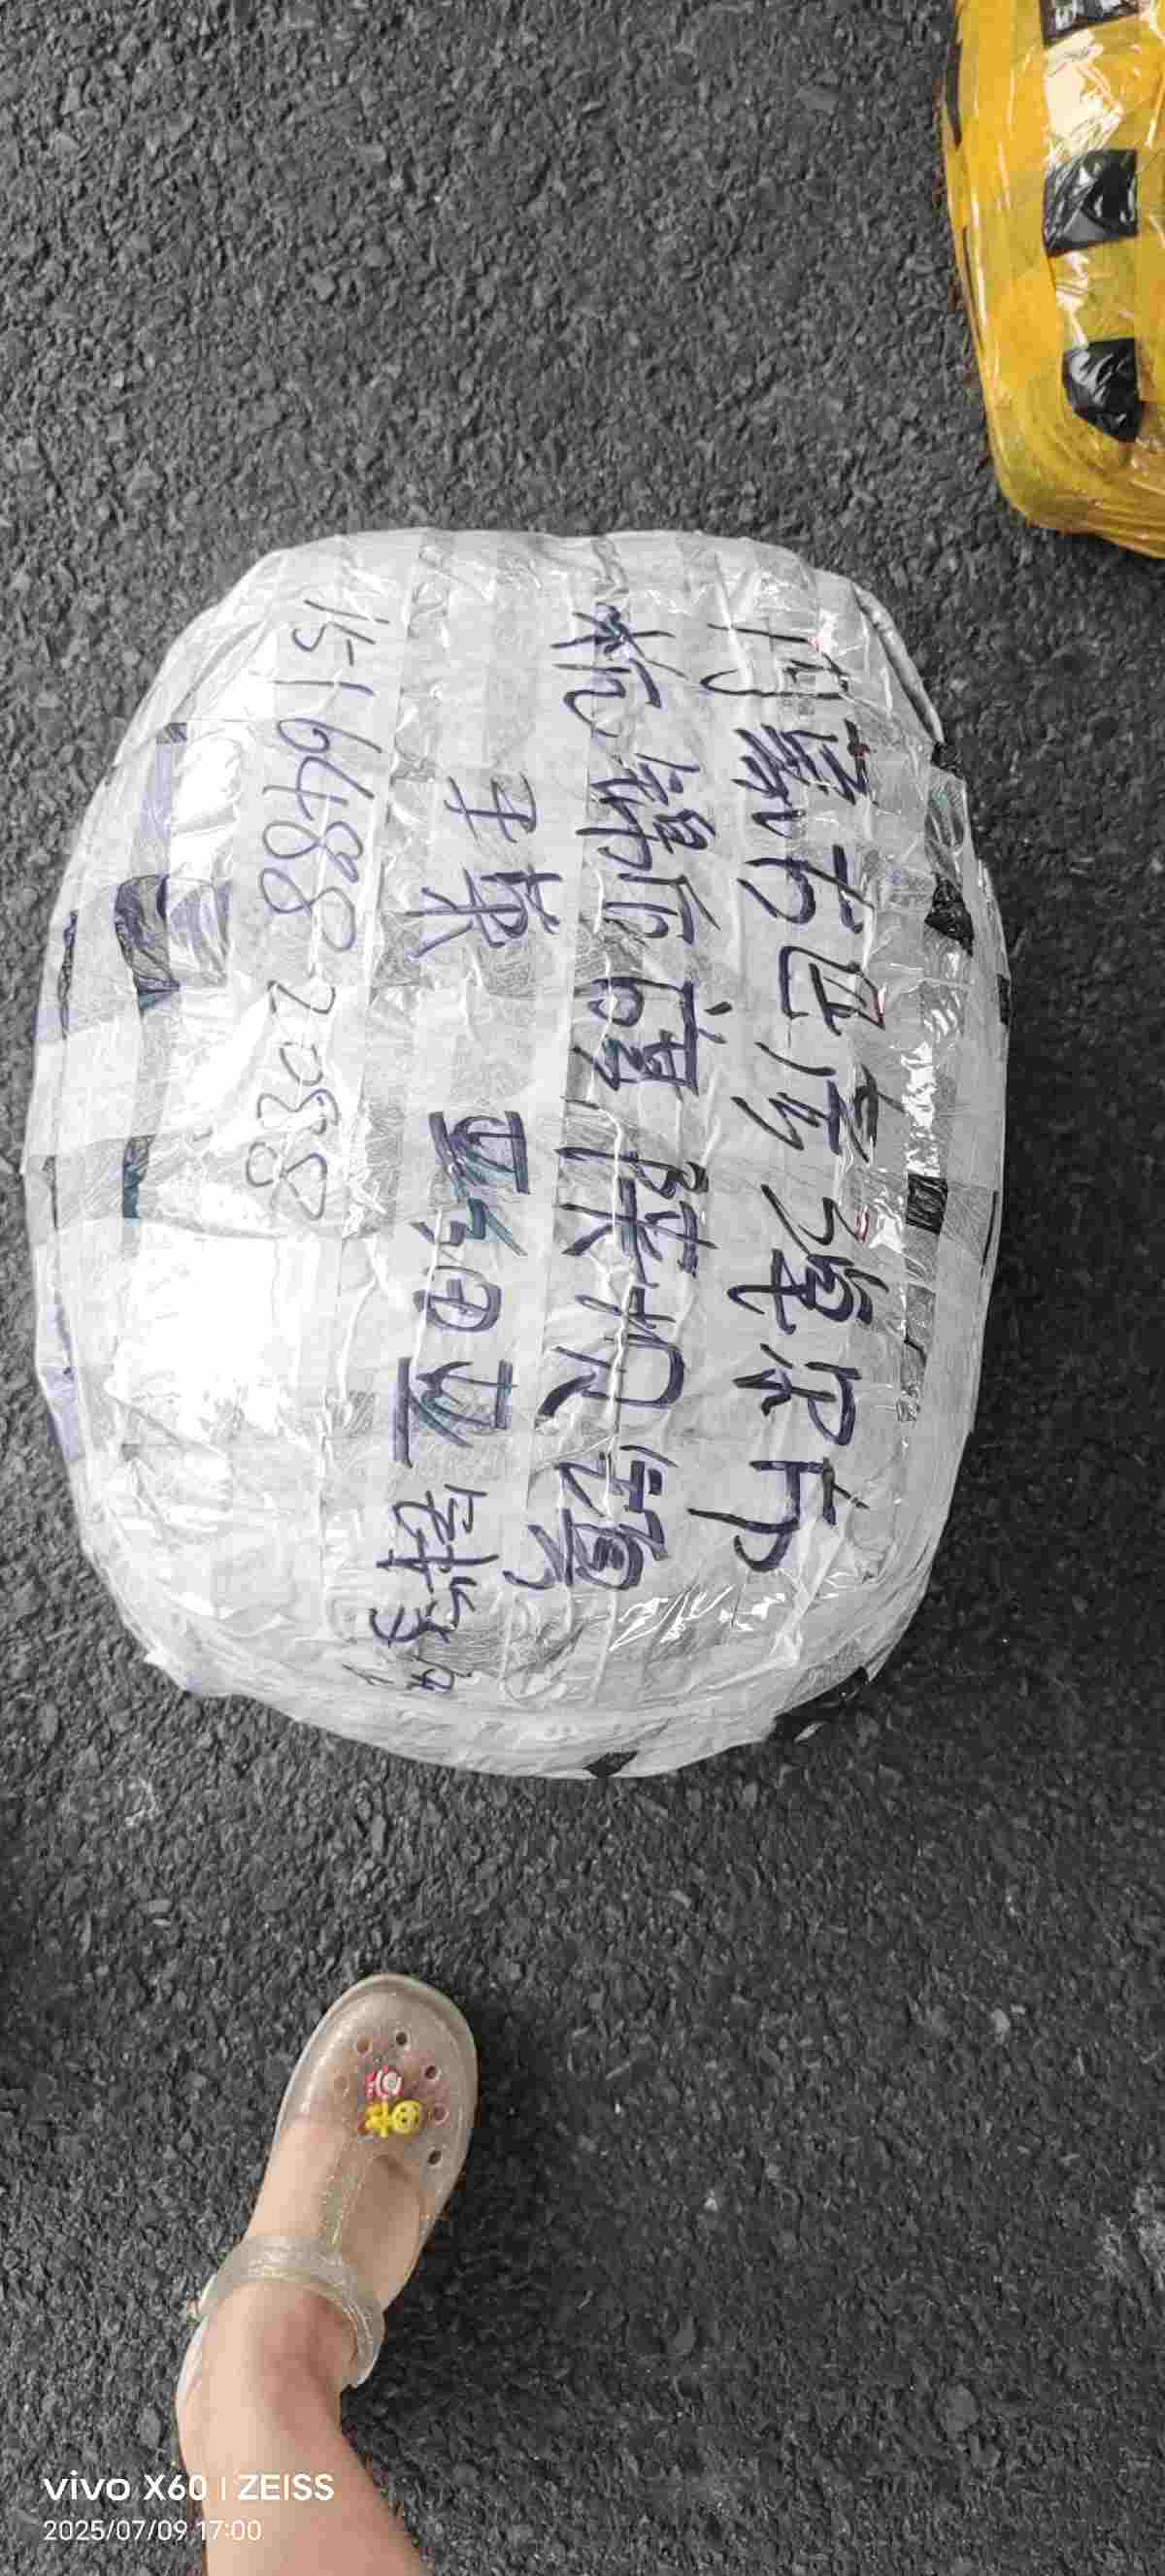 内蒙古巴彦淖尔市
杭锦后旗陕坝镇
王荣 亚细亚
1516488-2038
vivo X60 | ZEISS
2025/07/09 17:00